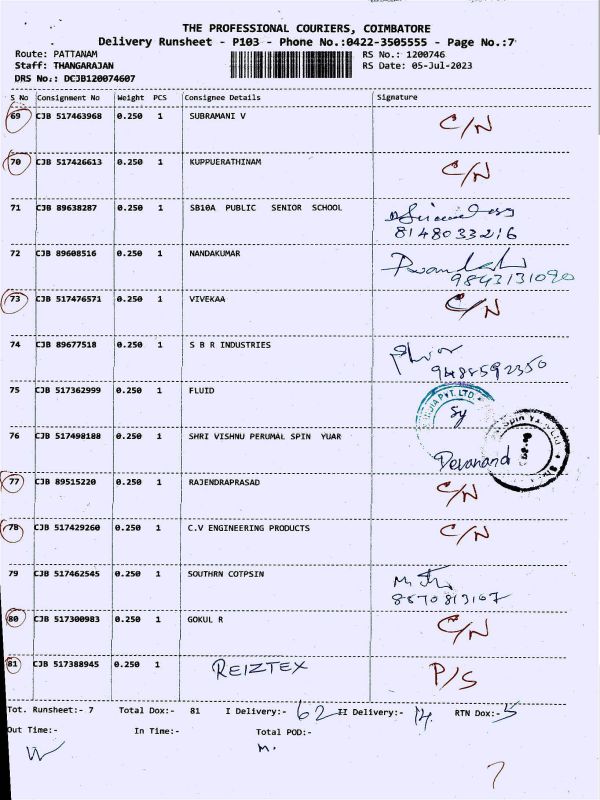 THE PROFESSIONAL COURIERS, COIMBATORE
Delivery Runsheet - P103 - Phone No.:0422-3505555 - Page No.:7
Route: PATTANAM RS No.: 1200746
Staff: THANGARAJAN RS Date: 05-Jul-2023
DRS No.: DCJB120074607
S No Consignment No Weight PCS Consignee Details Signature
69 CJB 517463968 0.250 1 SUBRAMANI V C/N
70 CJB 517426613 0.250 1 KUPPUERATHINAM C/N
71 CJB 89638287 0.250 1 SB10A PUBLIC SENIOR SCHOOL
8148033216
72 CJB 89608516 0.250 1 NANDAKUMAR
9843131090
73 CJB 517476571 0.250 1 VIVEKAA C/N
74 CJB 89677518 0.250 1 S B R INDUSTRIES
9488592350
75 CJB 517362999 0.250 1 FLUID
INDIA PVT. LTD
76 CJB 517498188 0.250 1 SHRI VISHNU PERUMAL SPIN YUAR
Devanand
77 CJB 89515220 0.250 1 RAJENDRAPRASAD C/N
78 CJB 517429260 0.250 1 C.V ENGINEERING PRODUCTS C/N
79 CJB 517462545 0.250 1 SOUTHRN COTPSIN
8870813167
80 CJB 517300983 0.250 1 GOKUL R C/N
81 CJB 517388945 0.250 1 REIZTEX P/S
Tot. Runsheet:- 7 Total Dox:- 81 I Delivery:- 62 II Delivery:- 14 RTN Dox:- 5
Out Time:- In Time:- Total POD:-
M.